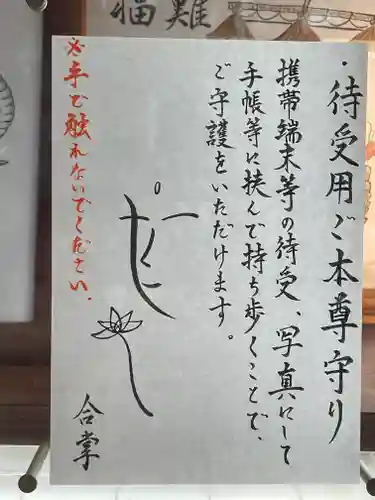 ・待受用ご本尊守り
携帯端末等の待受、写真にして
手帳等に挟んで持ち歩くことで、
ご守護をいただけます。
合掌
※手で触れないでください.
難
福